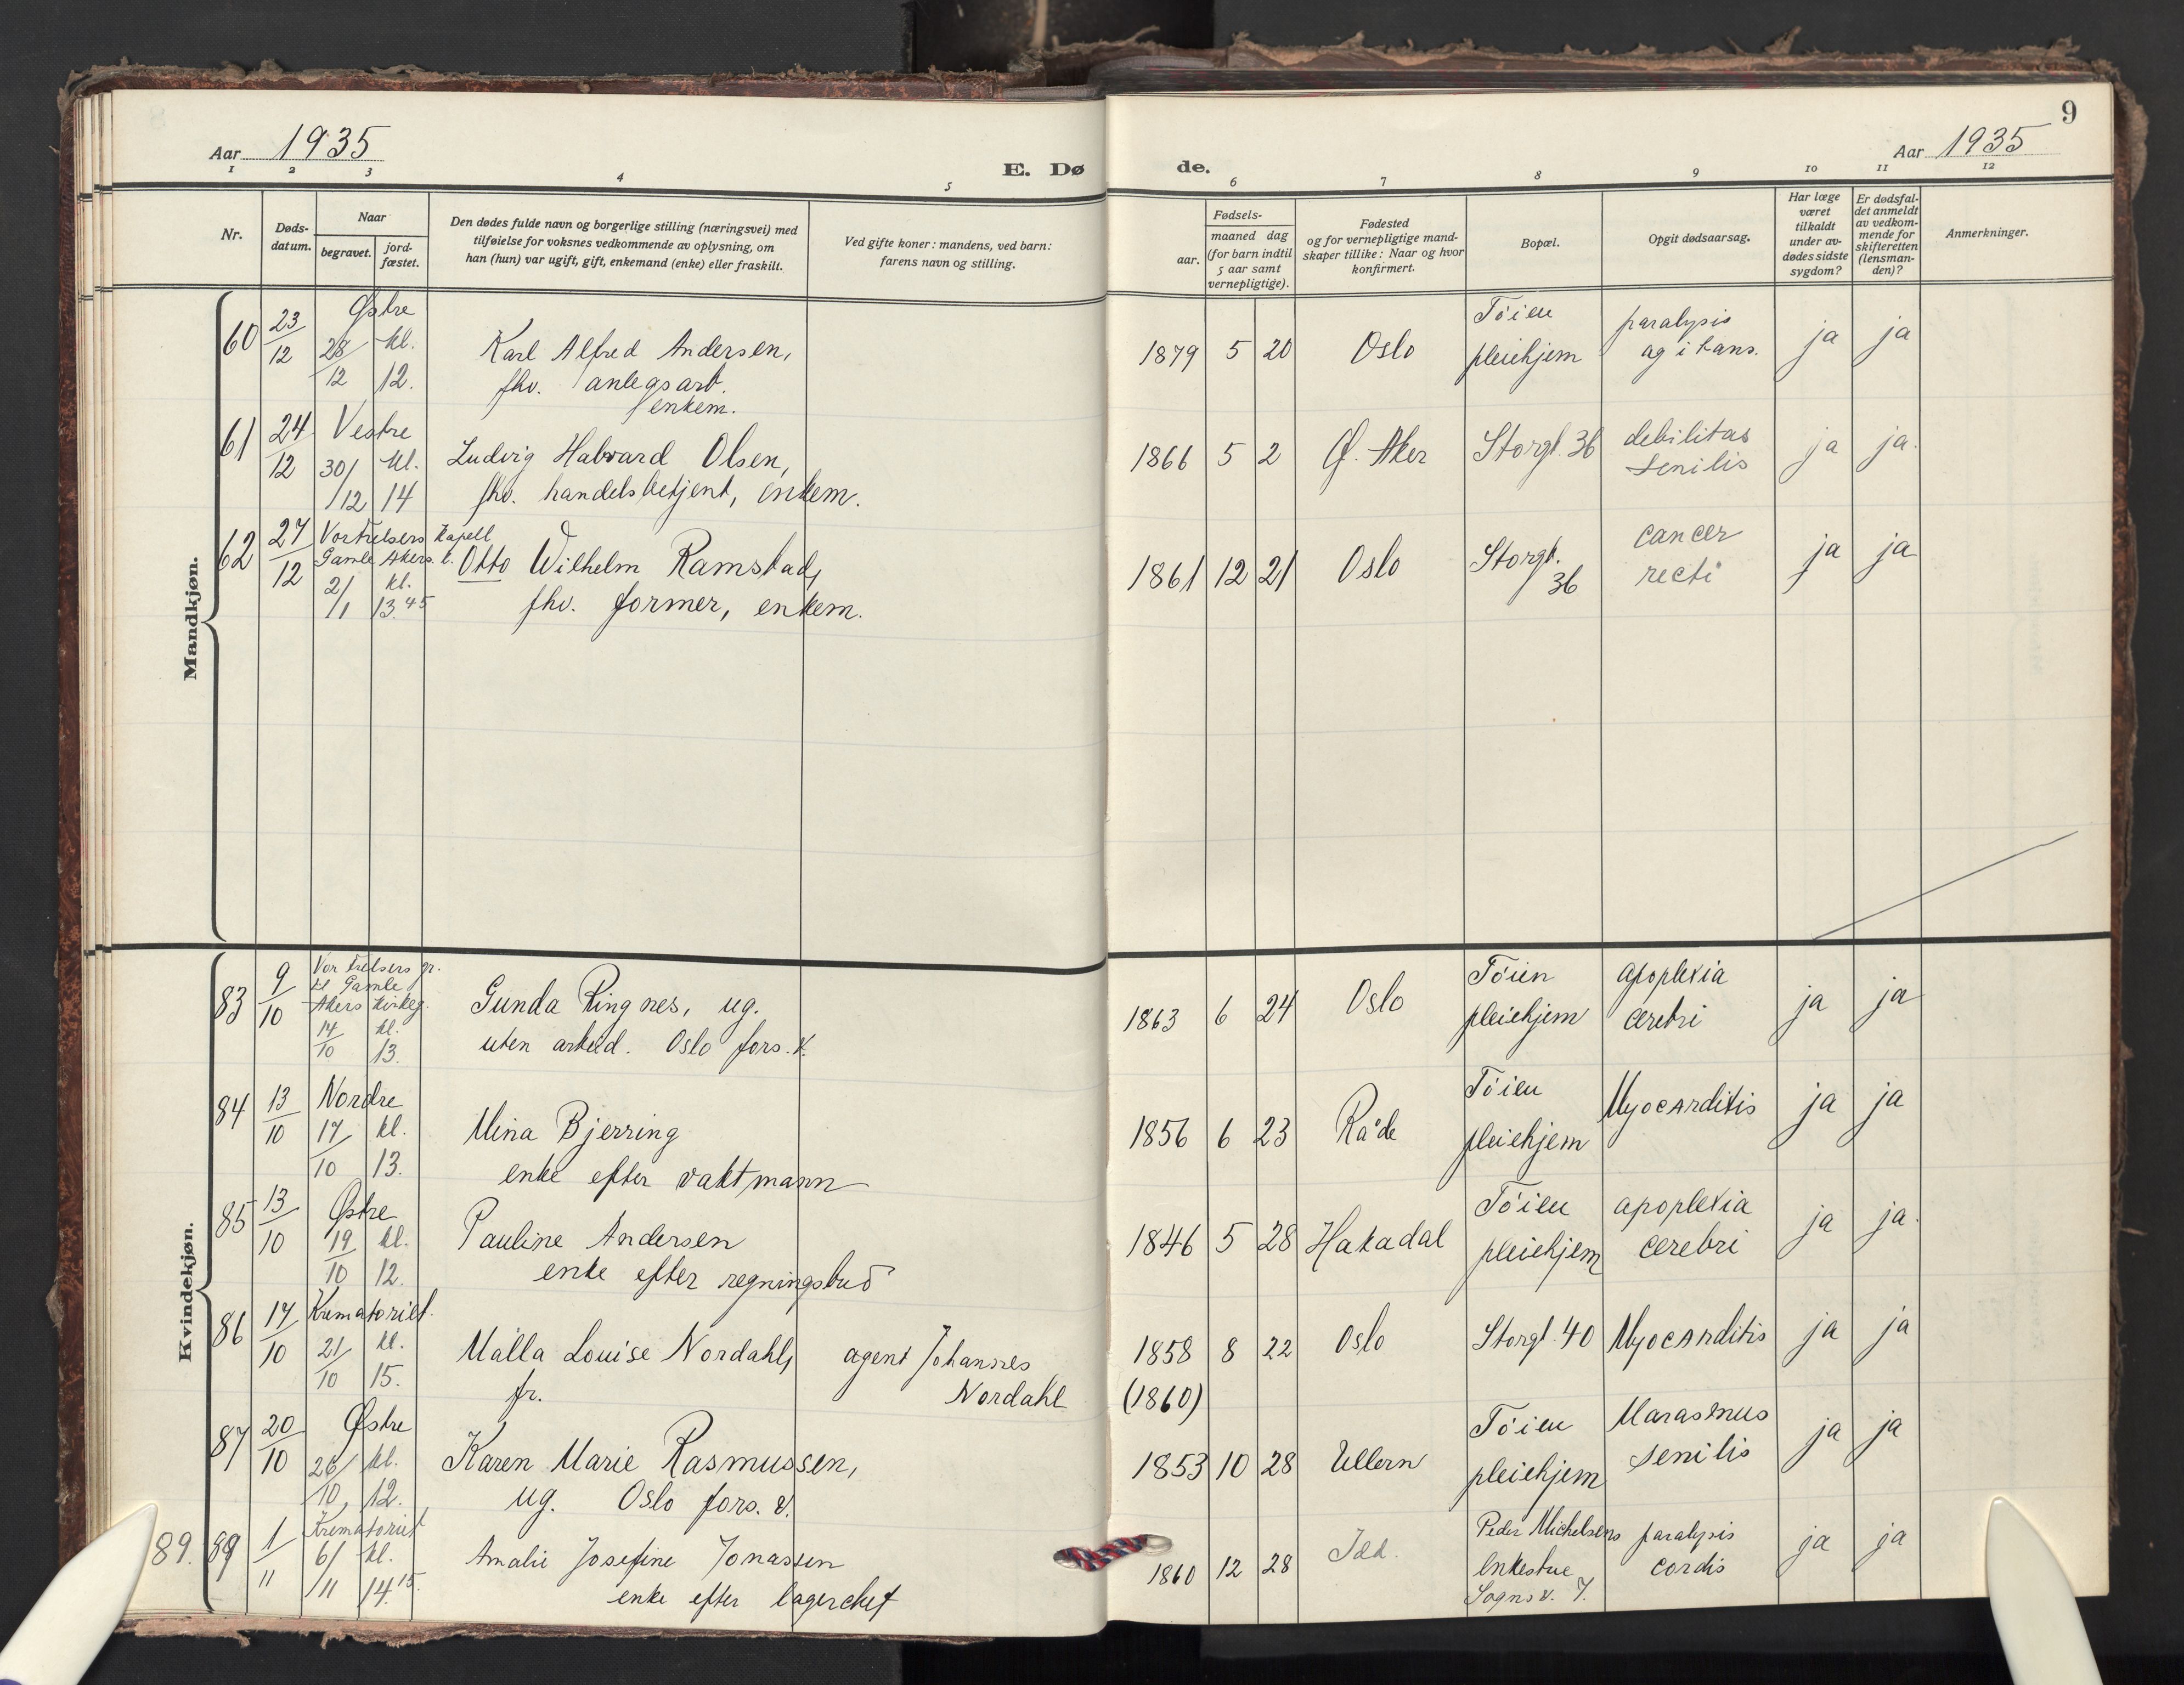 Aar 1935
E. Dø
de.
Aar 1935
9
1 2 3 4 5 6 7 8 9 10 11 12
Nr.
Døds-
datum.
Naar
begravet.
jord-
fæstet.
Den dødes fulde navn og borgerlige stilling (næringsvei) med
tilføielse for voksnes vedkommende av oplysning, om
han (hun) var ugift, gift, enkemand (enke) eller fraskilt.
Ved gifte koner: mandens, ved barn:
farens navn og stilling.
Fødsels-
aar.
maaned dag
(for barn indtil
5 aar samt
vernepligtige).
Fødested
og for vernepligtige mand-
skaper tillike: Naar og hvor
konfirmert.
Bopæl.
Opgit dødsaarsag.
Har læge
været
tilkaldt
under av-
dødes sidste
sygdom?
Er dødsfal-
det anmeldt
av vedkom-
mende for
skifteretten
(lensman-
den)?
Anmerkninger.
Mandkjøn.
60 23/12 Østre 28/12 kl. 12.
Karl Alfred Andersen,
fhv. anlegsarb.
enkem.
1879 5 20 Oslo
Tøien
pleiehjem
paralysis
agitans.
ja ja
61 24/12 Vestre 30/12 kl. 14
Ludvig Halvard Olsen,
fhv. handelsbetjent, enkem.
1866 5 2 Ø. Aker Storgt. 36
debilitas
senilis
ja ja.
62 27/12 Vor Frelsers Kapell
Gamle Akers k.
2/1 kl. 13.45
Otto Wilhelm Ramstad,
fhv. former, enkem.
1861 12 21 Oslo
Storgt.
36
cancer
recti
ja ja
Kvindekjøn.
83 9/10 Vor Frelsers gr.
til Gamle
Akers kirkeg.
14/10 kl. 13.
Gunda Ringnes, ug.
uten arbeid. Oslo fors. v.
1863 6 24 Oslo
Tøien
pleiehjem
apoplexia
cerebri
ja ja
84 13/10 Nordre 17/10 kl. 13.
Mina Bjerring
enke efter vaktmann
1856 6 23 Råde
Tøien
pleiehjem
Myocarditis
ja ja
85 13/10 Østre 19/10 kl. 12.
Pauline Andersen
enke efter regningsbud
1846 5 28 Hakadal
Tøien
pleiehjem
apoplexia
cerebri
ja ja.
86 17/10 Krematoriet. 21/10 kl. 15.
Malla Louise Nordahl,
fr.
agent Johannes
Nordahl
1858 8 22 Oslo Storgt. 40 Myocarditis ja ja
(1860)
87 20/10 Østre 26/10 kl. 12.
Karen Marie Rasmussen,
ug. Oslo fors. v.
1853 10 28 Ullern
Tøien
pleiehjem
Marasmus
senilis
ja ja
89. 89 1/11 Krematoriet 6/11 kl. 14.15.
Amalie Josefine Jonassen
enke efter lagerchef
1860 12 28 Idd.
Peder Michelsens
Enkestue
Sognsv. 7.
paralysis
cordis
ja ja